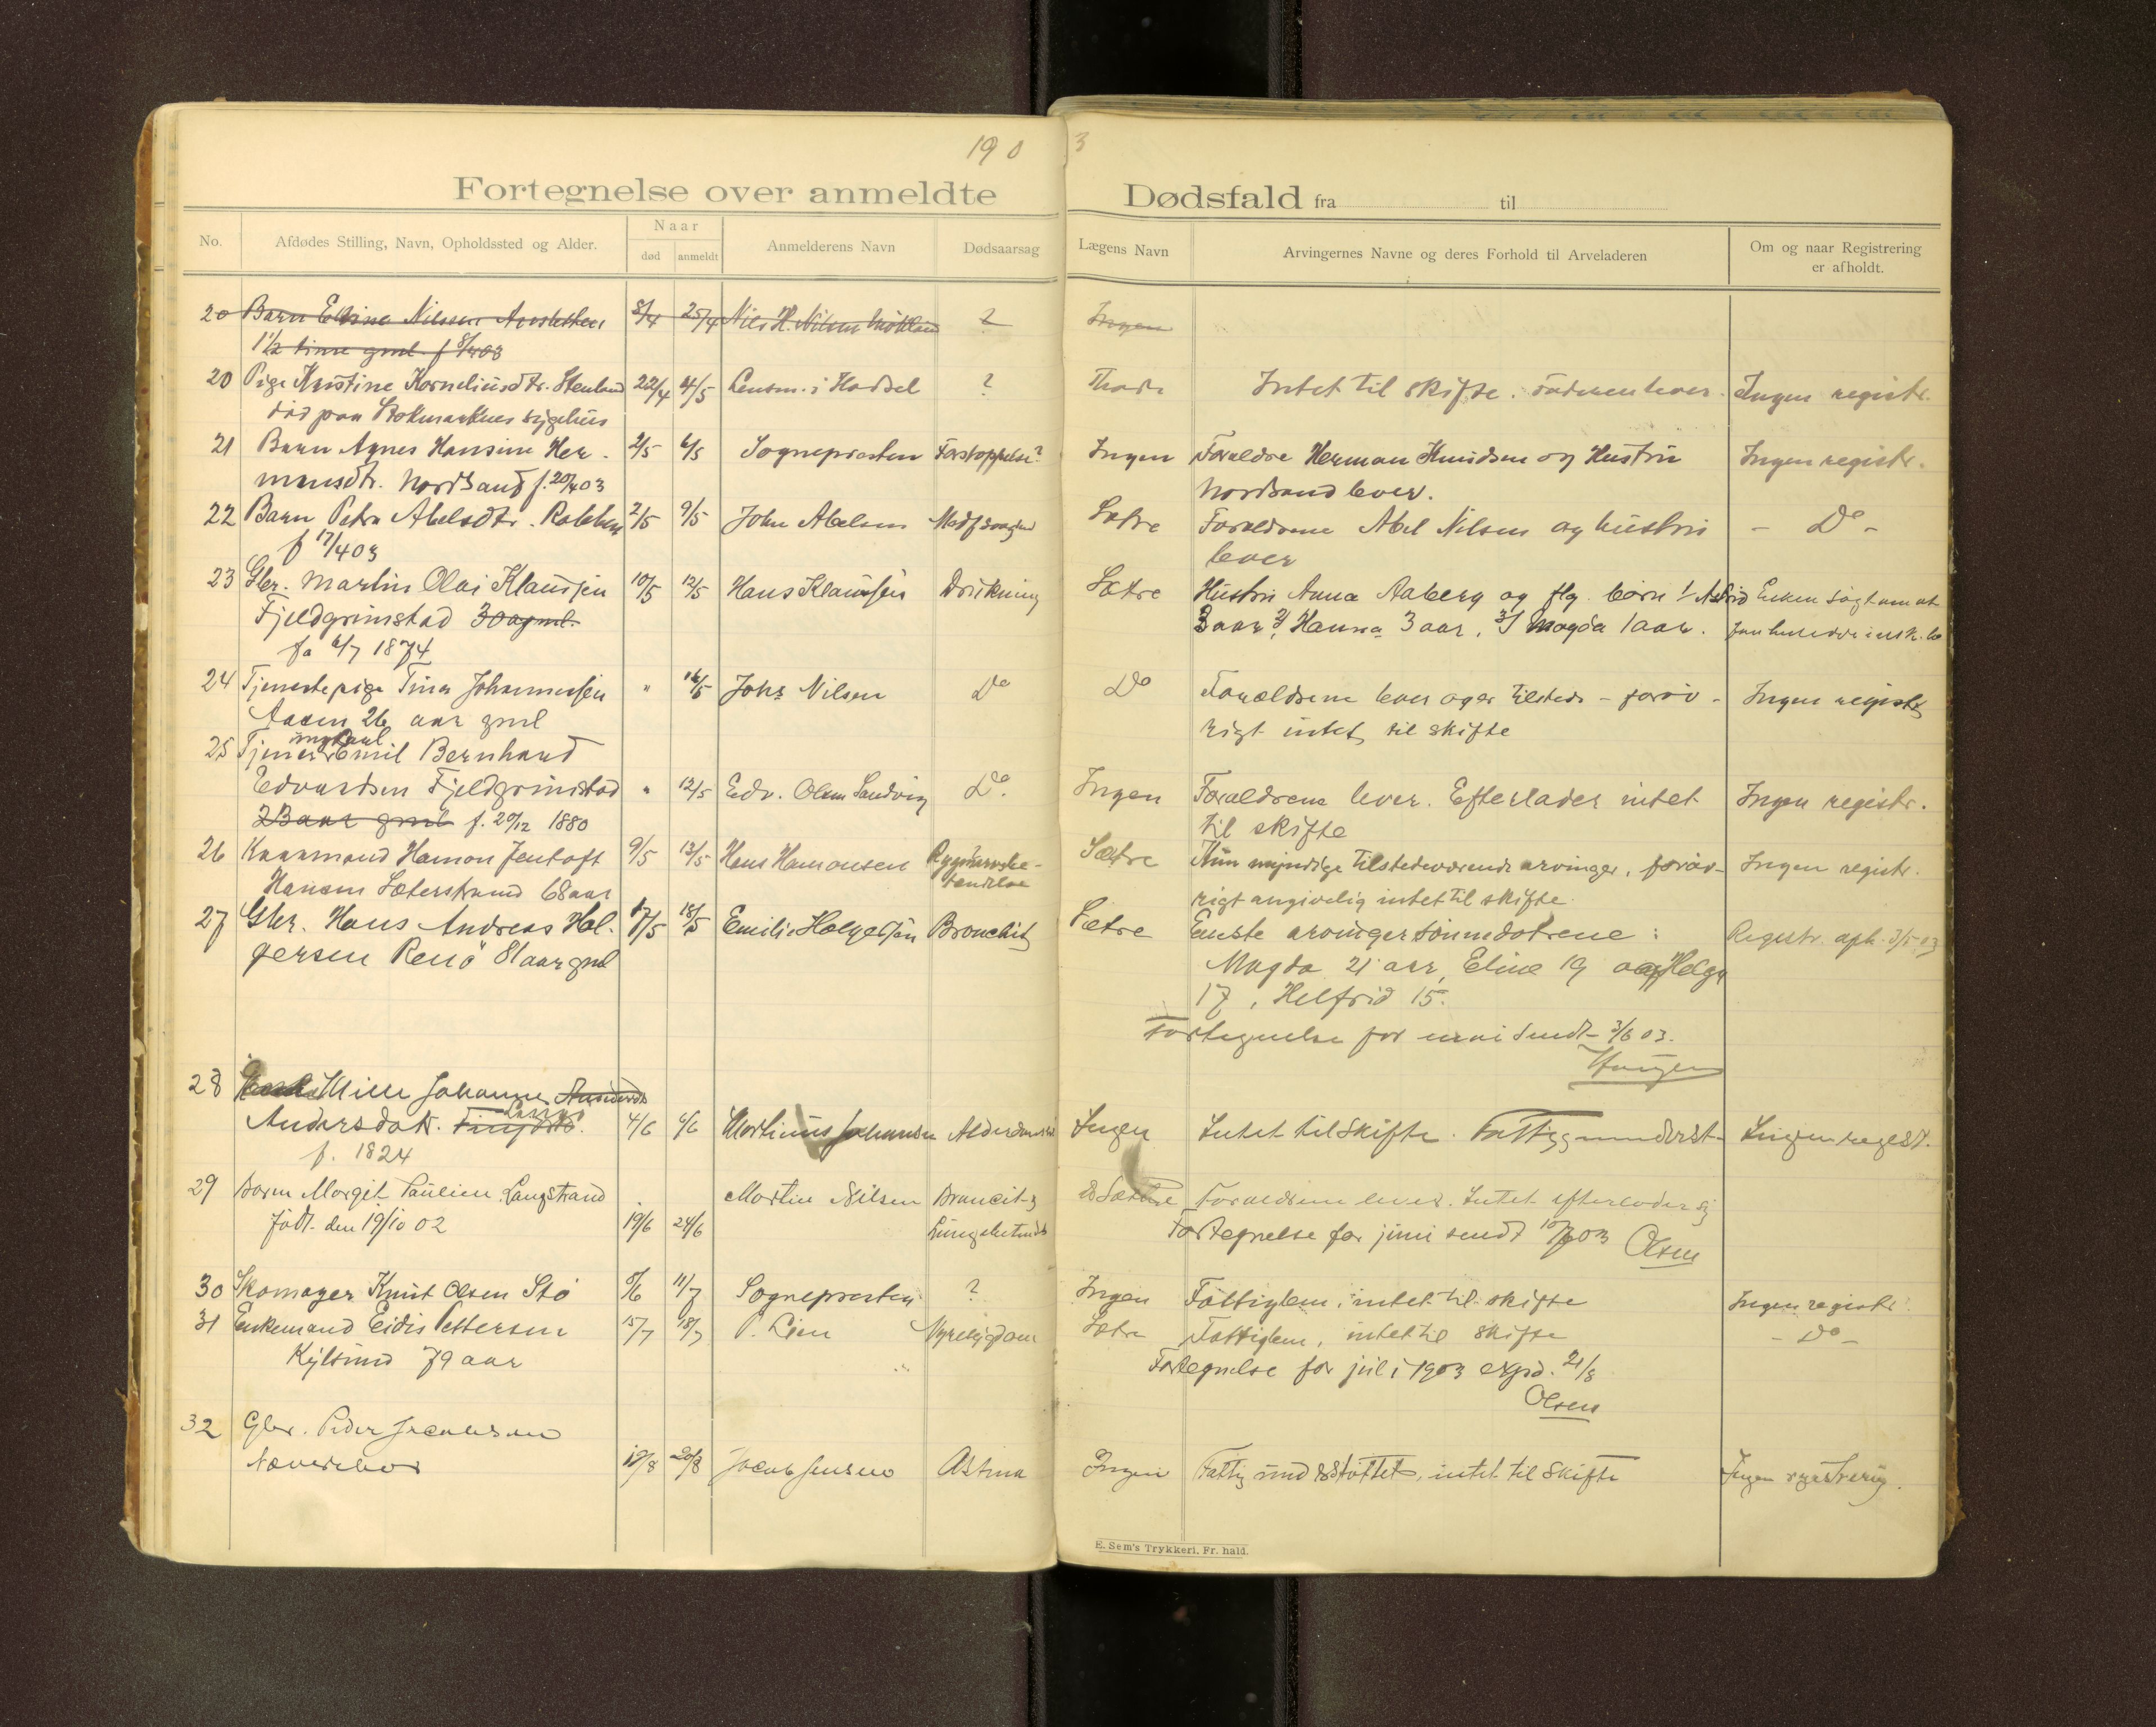 190
3
Fortegnelse over anmeldte
Dødsfald fra til
No.
Afdødes Stilling, Navn, Opholdssted og Alder.
Naar
død
anmeldt
Anmelderens Navn
Dødsaarsag
Lægens Navn
Arvingernes Navne og deres Forhold til Arveladeren
Om og naar Registrering
er afholdt.
20 Barn Nilsen 8/4 25/4 Nils H. Nilsen ? Ingen
1 1/2 time gml. f 8/4 03
20 Pige Kristine Korneliusdtr. Stenland 22/4 4/5 Lensm. i Hadsel ? Intet til skifte. Faderen lever. Ingen registr.
død paa Stokmarknes sygehus
21 Barn Agnes Hansine Her- 2/5 6/5 Sogneprosten Forstoppelse? Ingen Foreldre Herman Knudsen og Hustru Ingen registr.
mansdtr. Nordsand f. 20/4 03
Nordsand lever.
22 Barn Petra Abelsdtr. 2/5 9/5 John Abelsen Sætre Forældrene Abel Nilsen og hustru - Do -
f 17/4 03
lever
23 Gbr. Martin Olai Klausjen 10/5 12/5 Hans Klausjen Drukning Sætre Hustru Anna Aaberg og flg. børn 1/ Astrid Enken
Fjeldgrimstad 30 a gml.
3 aar 2/ Hanna 3 aar, 3/ Magda 1 aar.
fø 6/7 1874
24 Tjenestepige Tina Johannesjen " 16/5 Johs Nilsen Do Do Forældrene lever og er tilstede - forøv- Ingen registr
Aasen 26 aar gml
rigt intet til skifte
25 Tjener Emil Bernhard
Edvardsen Fjeldgrimstad " 12/5 Edv. Olsen Sandvig Do. Ingen Forældrene lever. Efterlader intet Ingen registr.
23 aar gml f. 20/12 1880
til skifte
26 Kaarmand Hamon Jentoft 9/5 13/5 Hans Hamonsen Sætre Kun myndige tilstedeværende arvinger, forøv- Ingen registr.
Hansen Sæterstrand 68 aar
rigt angivelig intet til skifte.
27 Gbr. Hans Andreas Hol- 17/5 18/5 Emilie Holgersen Bronchit Sætre Eneste arvinger sønnedøtrene: Registr. afh.
gersen Renø 81 aar gml
Magda 21 aar, Eline 19 og Helga
17, Helfrid 15.
Fortegnelse for mai sendt 3/6 03.
28 Johanne
Andersdatr. 4/6 6/6 Martinus Johansen Ingen Intet til skifte. Fattigunderst- Ingen regist.
f. 1824
29 Barn Margit Pauline Langstrand Martin Nilsen Sætre Forældrene lever. Intet efterlader sig
født den 19/10 02 19/6 24/6
Fortegnelse for juni sendt 03
Olsen
30 Skomager Knut Olsen Stø 11/7 Sogneprosten ? Ingen Fattiglem, intet til skifte Ingen registr.
31 Enkemand Eidis Pettersen 15/7 18/7 P. Lien Nyresygdom Sætre Fattiglem, intet til skifte - Do -
79 aar
Fortegnelse for juli 1903 exped. 21/8
Olsen
32 Gbr. Peder Jacobsen
19/8 20/8 Jacob Jensen Astma Ingen Fattigunderstøttet, intet til skifte Ingen
E. Sem's Trykkeri. Fr. hald.